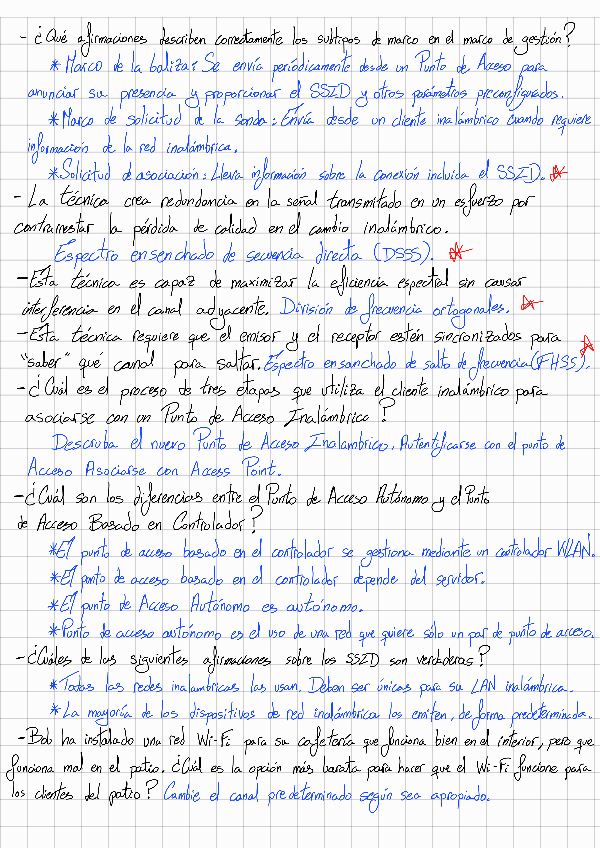 - ¿Qué afirmaciones describen correctamente los subtipos de marco en el marco de gestión?
* Marco de la baliza: Se envía periódicamente desde un Punto de Acceso para
anunciar su presencia y proporcionar el SSID y otros parámetros preconfigurados.
* Marco de solicitud de la sonda: Envía desde un cliente inalámbrico cuando requiere
información de la red inalámbrica.
* Solicitud de asociación: Lleva información sobre la conexión incluida el SSID.
- La técnica crea redundancia en la señal transmitado en un esfuerzo por
contrarrestar la pérdida de calidad en el cambio inalámbrico.
Espectro ensenchado de secuencia directa (DSSS).
- Esta técnica es capaz de maximizar la eficiencia espectral sin causar
interferencia en el canal adyacente. División de frecuencia ortogonales.
- Esta técnica requiere que el emisor y el receptor estén sincronizados para
"saber" qué canal para saltar. Espectro ensanchado de salto de frecuencia (FHSS).
- ¿Cuál es el proceso de tres etapas que utiliza el cliente inalámbrico para
asociarse con un Punto de Acceso Inalámbrico?
Descruba el nuevo Punto de Acceso Inalambrico. Autentificarse con el punto de
Acceso Asociarse con Access Point.
- ¿Cuál son los diferencias entre el Punto de Acceso Autónomo y el Punto
de Acceso Basado en Controlador?
* El punto de acceso basado en el controlador se gestiona mediante un controlador WLAN.
* El punto de acceso basado en el controlador depende del servidor.
* El punto de Acceso Autónomo es autónomo.
* Punto de acceso autónomo es el uso de una red que quiere sólo un par de punto de acceso.
- ¿Cuáles de las siguientes afirmaciones sobre los SSID son verdaderas?
* Todas las redes inalambricas las usan. Deben ser únicas para su LAN inalámbrica.
* La mayoría de los dispositivos de red inalámbrica los emiten, de forma predeterminada.
- Bob ha instalado una red Wi-Fi para su cafetería que funciona bien en el interior, pero que
funciona mal en el patio. ¿Cuál es la opción más barata para hacer que el Wi-Fi funcione para
los clientes del patio? Cambie el canal predeterminado según sea apropiado.